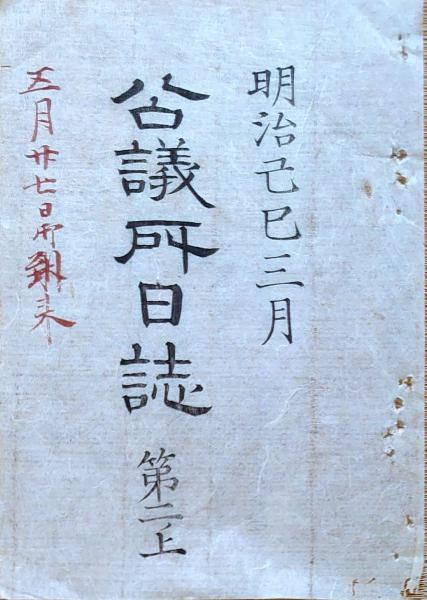 明治己巳三月
公議所日誌 第二上
五月廿七日
来